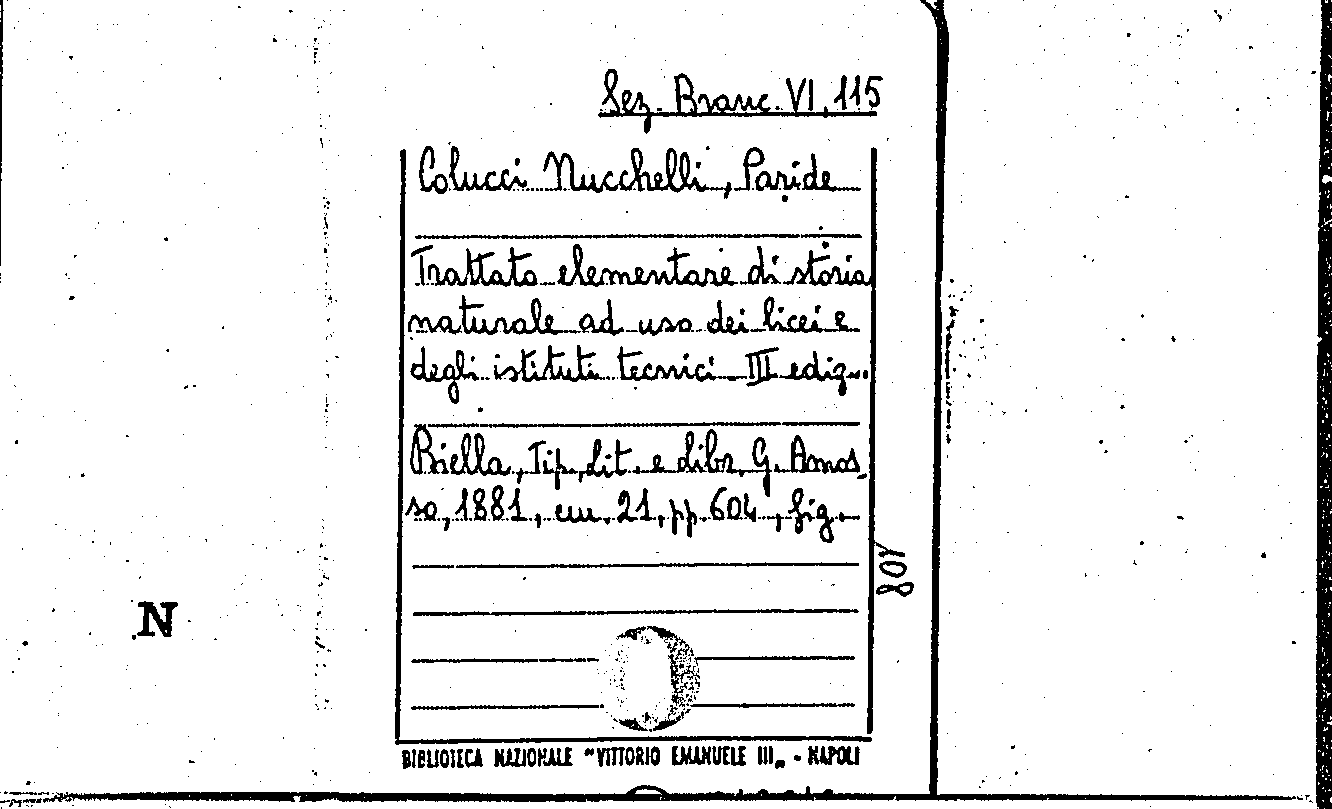 Sez. Branc. VI. 115
Colucci Nucchelli, Paride
Trattato elementare di storia
naturale ad uso dei licei e
degli istituti tecnici III ediz..
Biella, Tip., Lit. e Libr. G. Amos
so, 1881, cm. 21, pp. 604, fig.
108
N
BIBLIOTECA NAZIONALE "VITTORIO EMANUELE III„ - NAPOLI